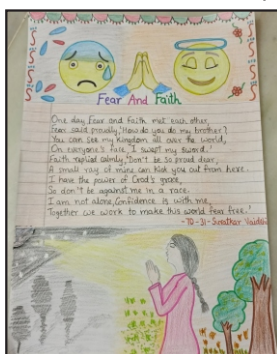 Fear And Faith
One day Fear and Faith met each other,
Fear said proudly,'How do you do my brother?
You can see my kingdom all over the world,
On everyone's face I swept my sword.'
Faith replied calmly,"Don't be so proud dear,
A small ray of mine can kick you out from here.
I have the power of God's grace,
So don't be against me in a race.
I am not alone, Confidence is with me,
Together we work to make this world fear free.'